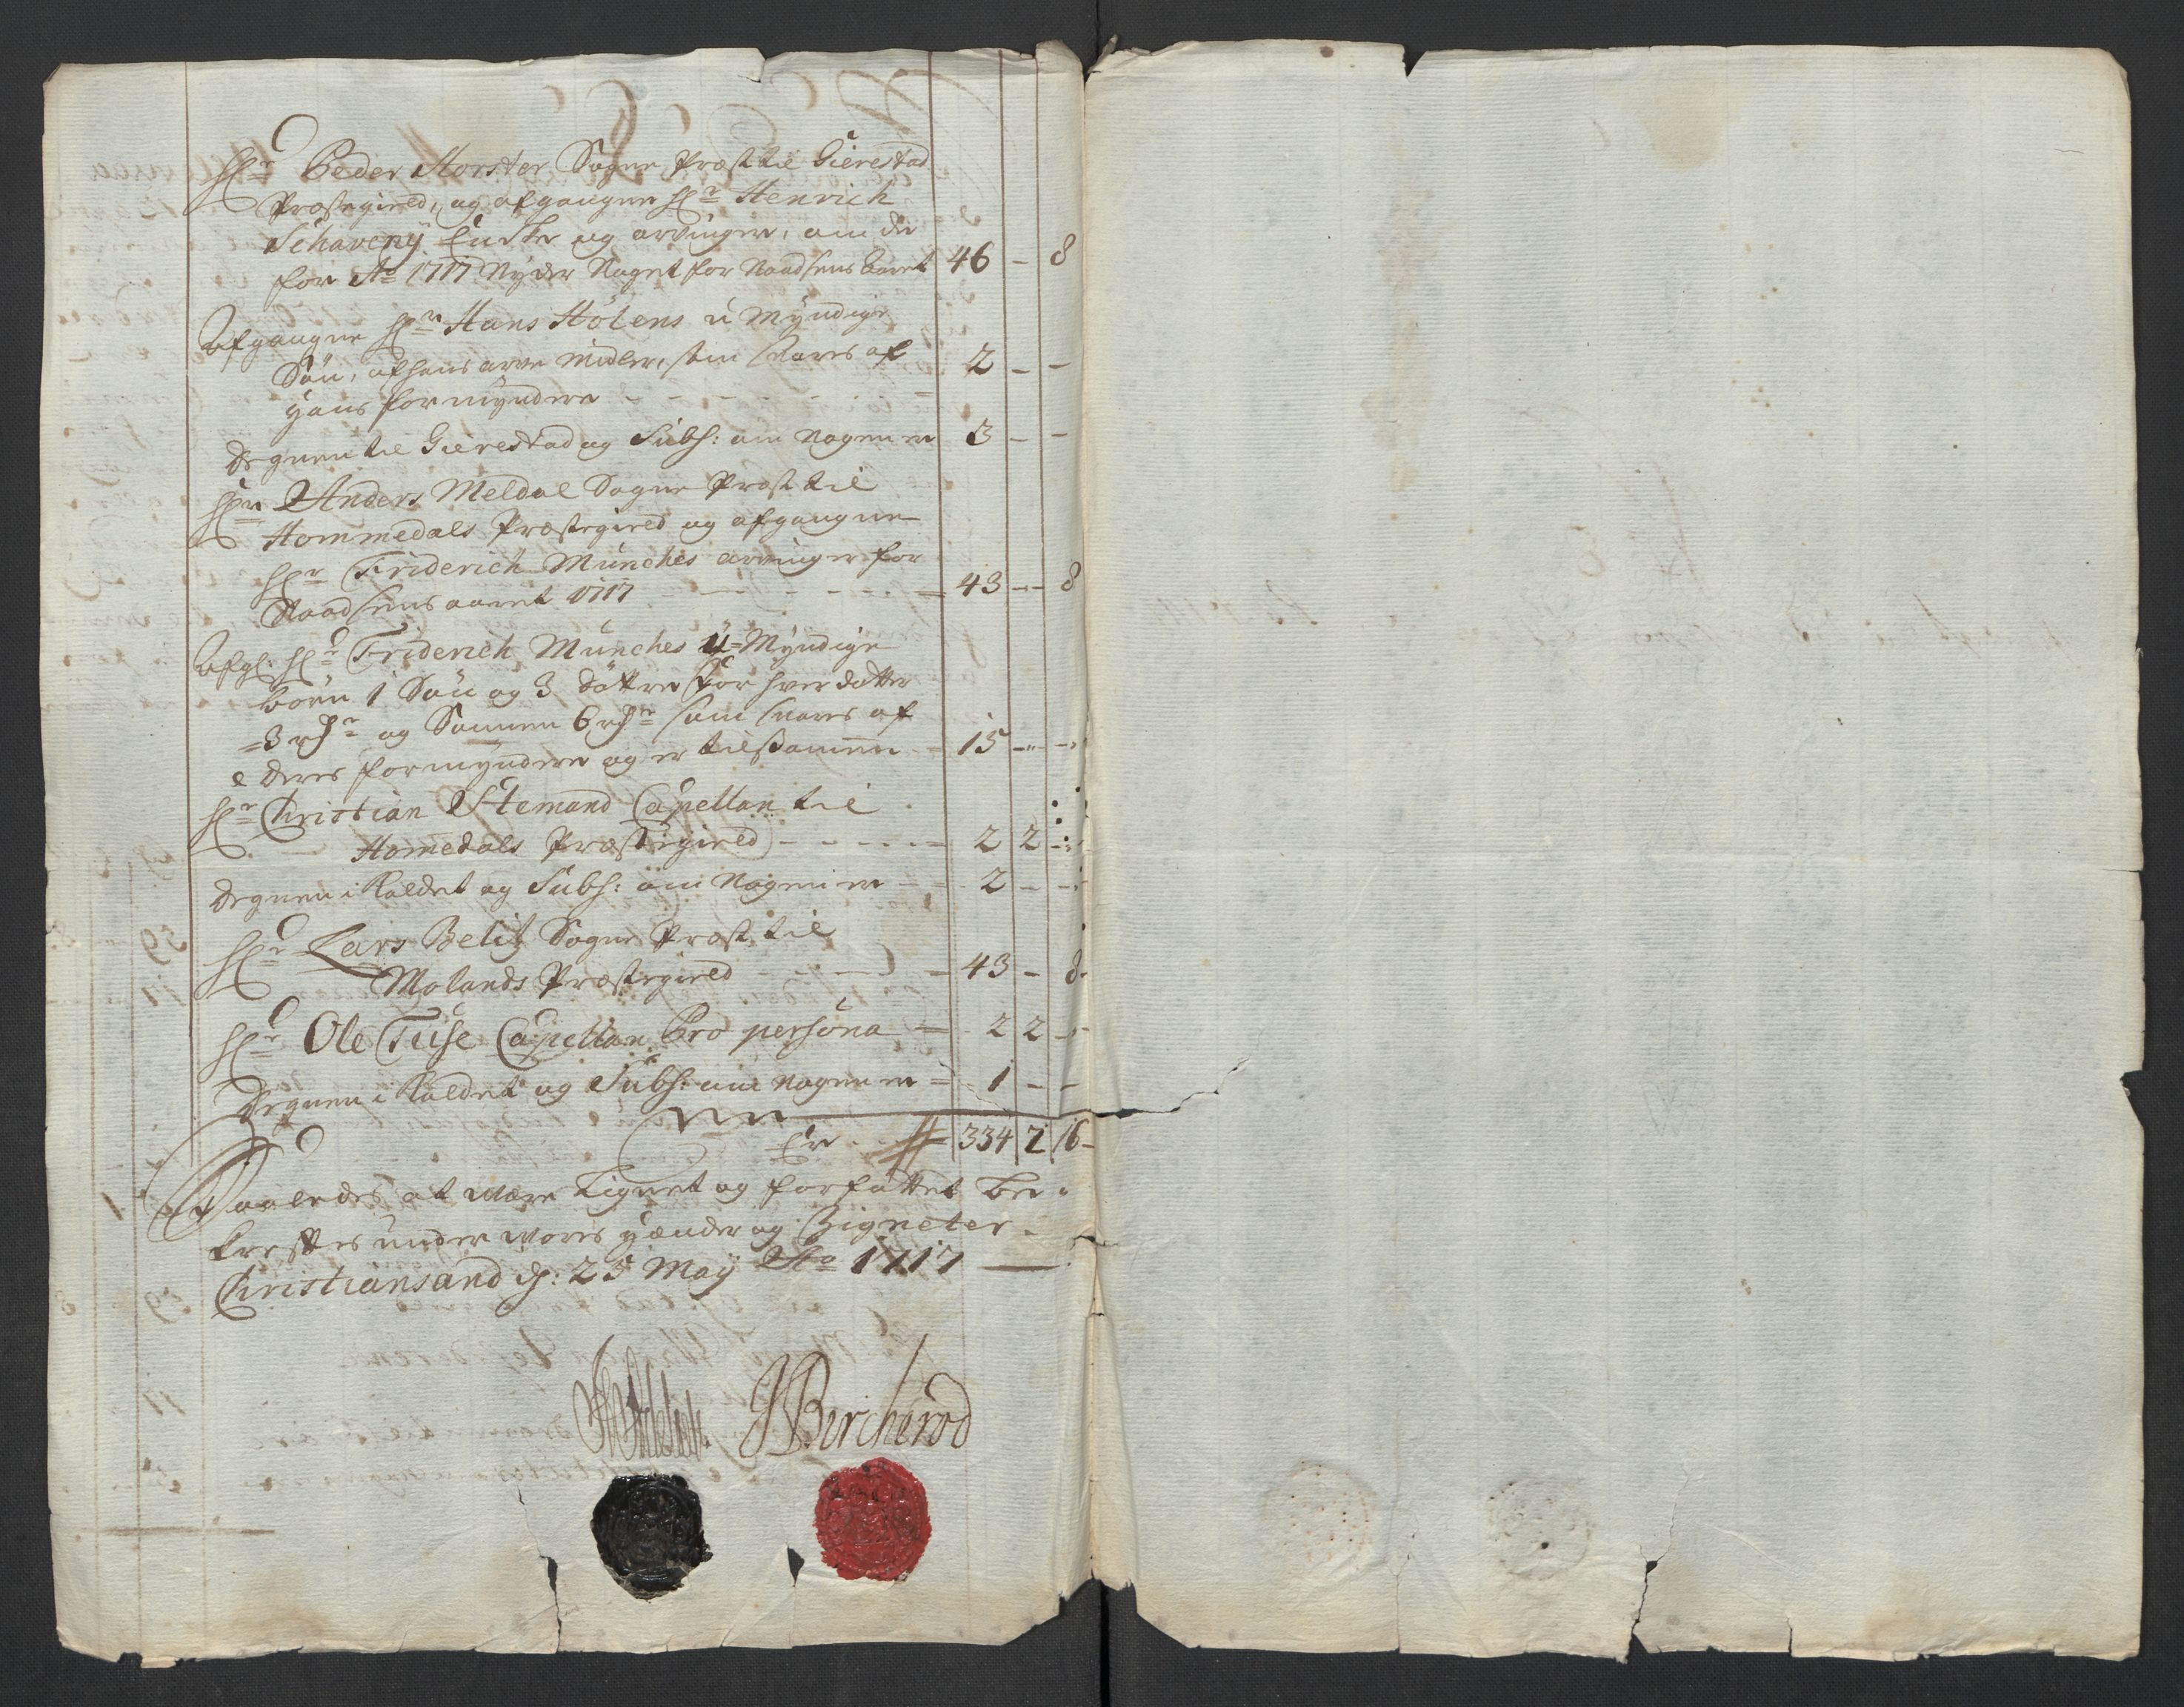 Hr Peder Morster Sogne Præst til Gierestad
Præstegield, og afgangne Hr Henrich
Schaveny Encke og arvinger, om de
for Ao 1717 Nyder Noget for Naadsens Aaret 46 - 8
Afgangne Hr Hans Hölens u Myndige
Sön, af hans arve Midler, som svares af 2 - -
hans formyndere - - - - -
Degnen til Gierestad og Subs: om Nogen er 3 - -
Hr Anders Meldal Sogne Præst til
Hommedals Præstegield og afgangne
Hr Friderich Munches arvinger for
Naadsens aaret 1717 - - - - 43 - 8
Afg: Hr Friderich Munches U=Myndige
börn 1 Sön og 3 Döttre for hver datter
3 rdr og Sønnen 6 rdr som svares af
deres formyndere og er tilsammen 15 - -
Hr Christian Stemand Capellan til
Homedals Præstegield - - - - 2 2 -
Degnen i Kaldet og Subs: om Nogen er - 2 - -
Hr Lars Belitz Sogne Præst til
Molands Præstegield - - - 43 - 8
Hr Ole Tuse Capellan Pro persona 2 2 -
Degnen i Kaldet og Subs: om nogen er 1 - -
Er 334 2 16
Saaledes at være Lignet og forfattet be-
kreftes under vores hænder og Zigneter
Christiansand d: 25 Maij Ao 1717
JBircherod